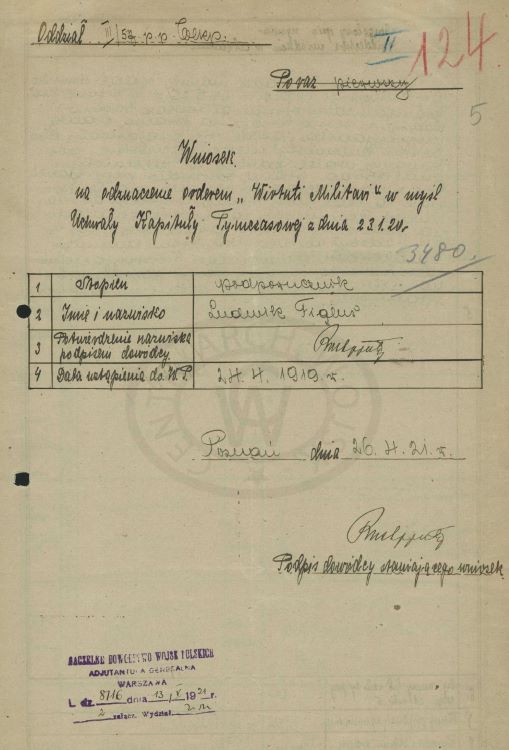 Oddział III/53 p.p. Strzel.
II 124.
Po raz pierwszy
5
Wniosek
na odznaczenie orderem „Wirtuti Militari" w myśl
Uchwały Kapituły Tymczasowej z dnia 23.1.20r
3480.
1 Stopień podporucznik
2 Imię i nazwisko Ludwik Figiel
3 Potwierdzenie nazwiska
podpisem dowódcy.
4 Data wstąpienia do W.P. 24.4.1919 r.
Poznań dnia 26.4.21 r.
Podpis dowódcy stawiającego wniosek
NACZELNE DOWÓDZTWO WOJSK POLSKICH
ADJUTANTURA GENERALNA
WARSZAWA
L. dz. 8716 dnia 13/V 1921 r.
2 załącz. Wydział.